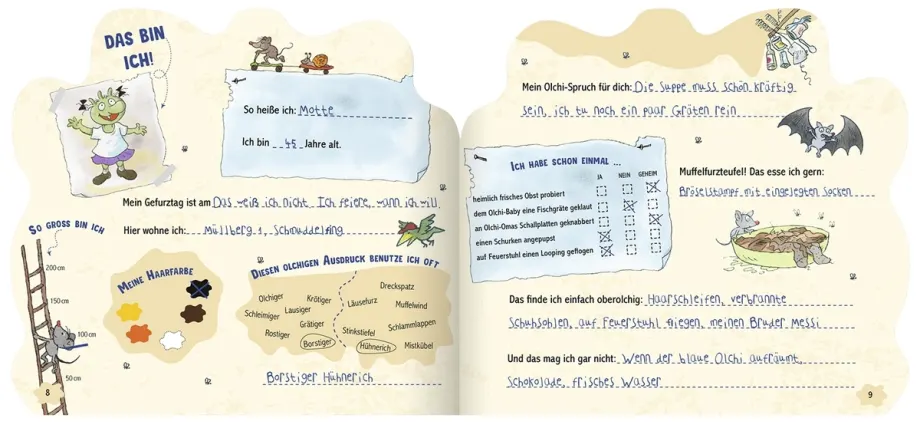 DAS BIN
ICH!
So heiße ich: Motte
Ich bin 45 Jahre alt.
Mein Gefurztag ist am Das weiß ich nicht. Ich feiere, wann ich will.
Hier wohne ich: Müllberg 1, Schmuddelfing
SO GROSS BIN ICH
200 cm
150 cm
100 cm
50 cm
MEINE HAARFARBE
DIESEN OLCHIGEN AUSDRUCK BENUTZE ICH OFT
Olchiger
Schleimiger
Krötiger
Lausiger
Grätiger
Rostiger
Borstiger
Dreckspatz
Läusefurz
Muffelwind
Stinkstiefel
Schlammlappen
Hühnerich
Mistkübel
Borstiger Hühnerich
8
Mein Olchi-Spruch für dich: Die Suppe muss schön kräftig
sein, ich tu noch ein paar Gräten rein
ICH HABE SCHON EINMAL ...
JA NEIN GEHEIM
heimlich frisches Obst probiert
dem Olchi-Baby eine Fischgräte geklaut
an Olchi-Omas Schallplatten geknabbert
einen Schurken angepupst
auf Feuerstuhl einen Looping geflogen
Muffelfurzteufel! Das esse ich gern:
Bröselstampf mit eingelegten Socken
Das finde ich einfach oberolchig: Haarschleifen, verbrannte
Schuhsohlen, auf Feuerstuhl fliegen, meinen Bruder Messi
Und das mag ich gar nicht: Wenn der blaue Olchi aufräumt,
Schokolade, frisches Wasser
9